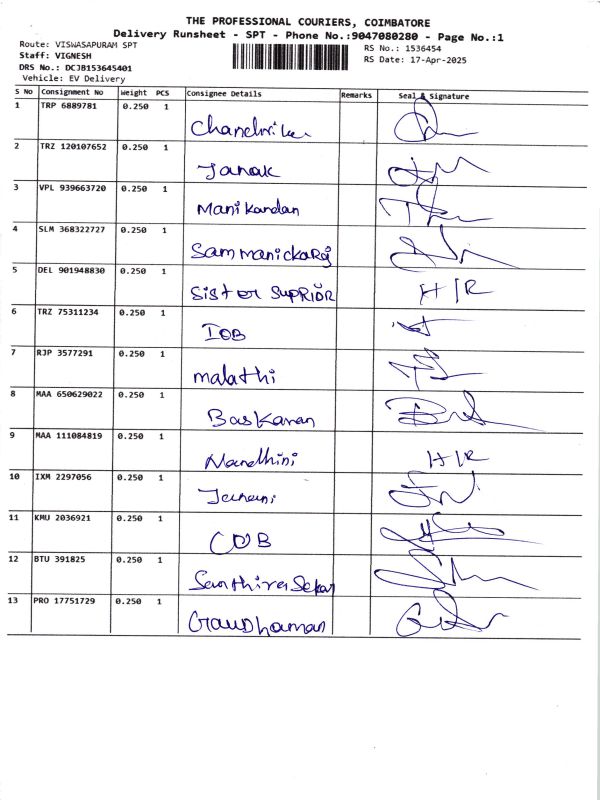 THE PROFESSIONAL COURIERS, COIMBATORE
Delivery Runsheet - SPT - Phone No.:9047080280 - Page No.:1
Route: VISWASAPURAM SPT
Staff: VIGNESH
DRS No.: DCJB153645401
Vehicle: EV Delivery
RS No.: 1536454
RS Date: 17-Apr-2025
S No Consignment No Weight PCS Consignee Details Remarks Seal & Signature
1 TRP 6889781 0.250 1
Chandrika
2 TRZ 120107652 0.250 1
Janak
3 VPL 939663720 0.250 1
Manikandan
4 SLM 368322727 0.250 1
Sammanickaraj
5 DEL 901948830 0.250 1
Sister SupRiOR H/R
6 TRZ 75311234 0.250 1
IOB
7 RJP 3577291 0.250 1
malathi
8 MAA 650629022 0.250 1
Baskaran
9 MAA 111084819 0.250 1
Nandhini H/R
10 IXM 2297056 0.250 1
Janani
11 KMU 2036921 0.250 1
CUB
12 BTU 391825 0.250 1
Santhirasekar
13 PRO 17751729 0.250 1
Gaudhaman